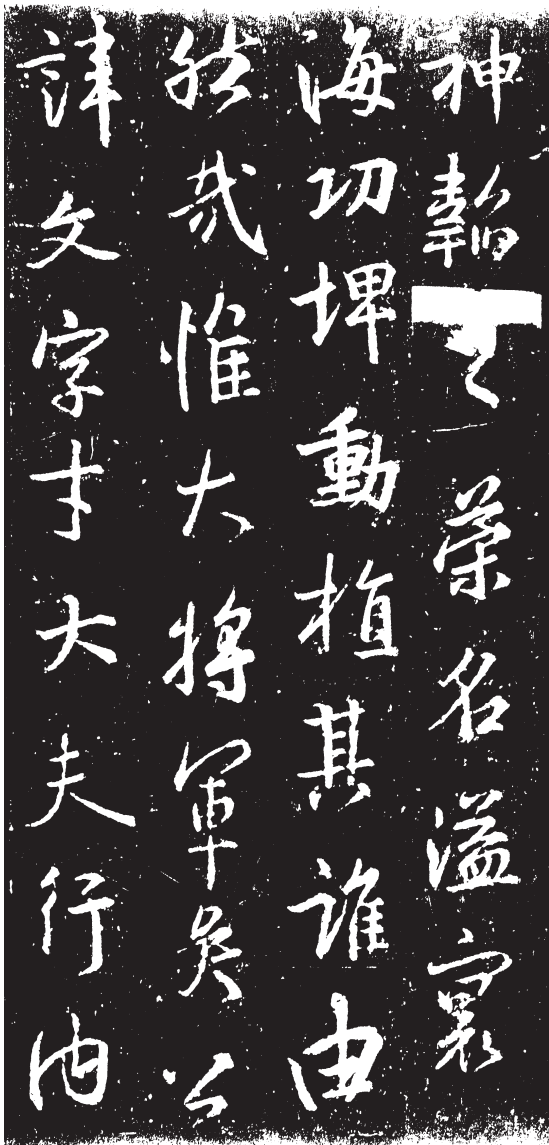 神韜之榮名溢寰
海功埤動植其誰由
然哉惟大將軍矣公
諱文字才大夫行内